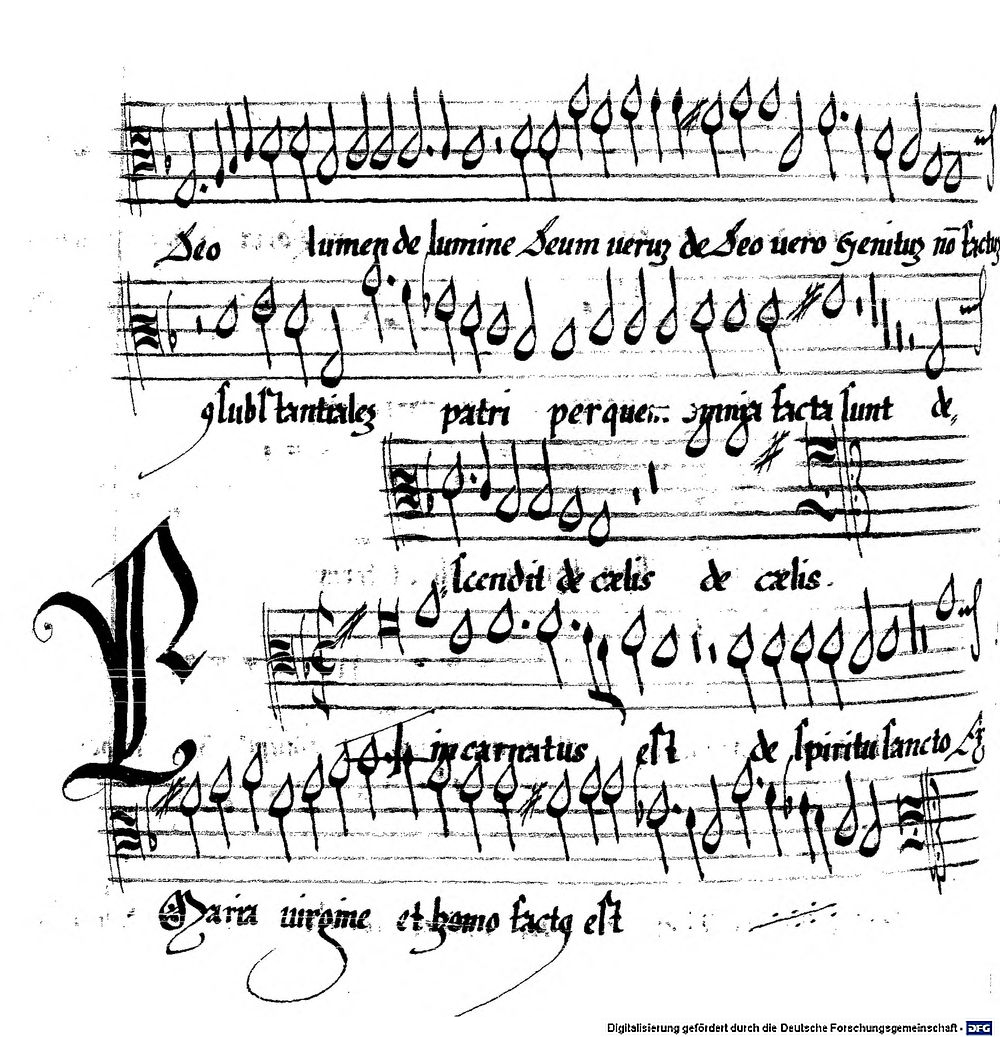 Deo lumen de lumine Deum ueruʒ de Deo uero Genituʒ nō factuʒ
ꝯsubstantialeʒ patri per quem omnia facta sunt de-
scendit de cælis de cælis.
Et incarnatus est de spiritu sancto Ex
Maria uirgine et homo factꝰ est
Digitalisierung gefördert durch die Deutsche Forschungsgemeinschaft - DFG